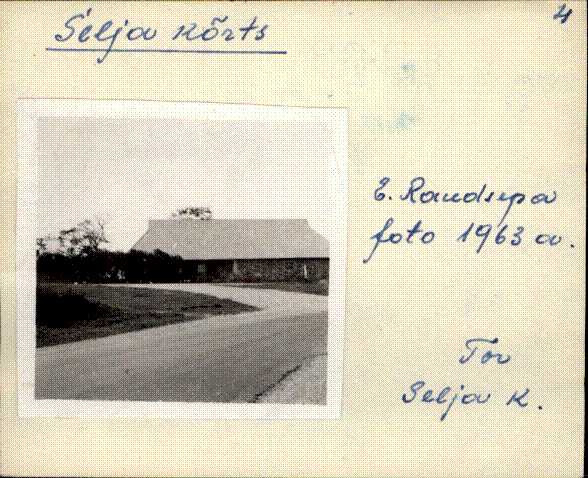 4
Selja kõrts
E. Raudsepa
foto 1963 a.
Tor
Selja k.